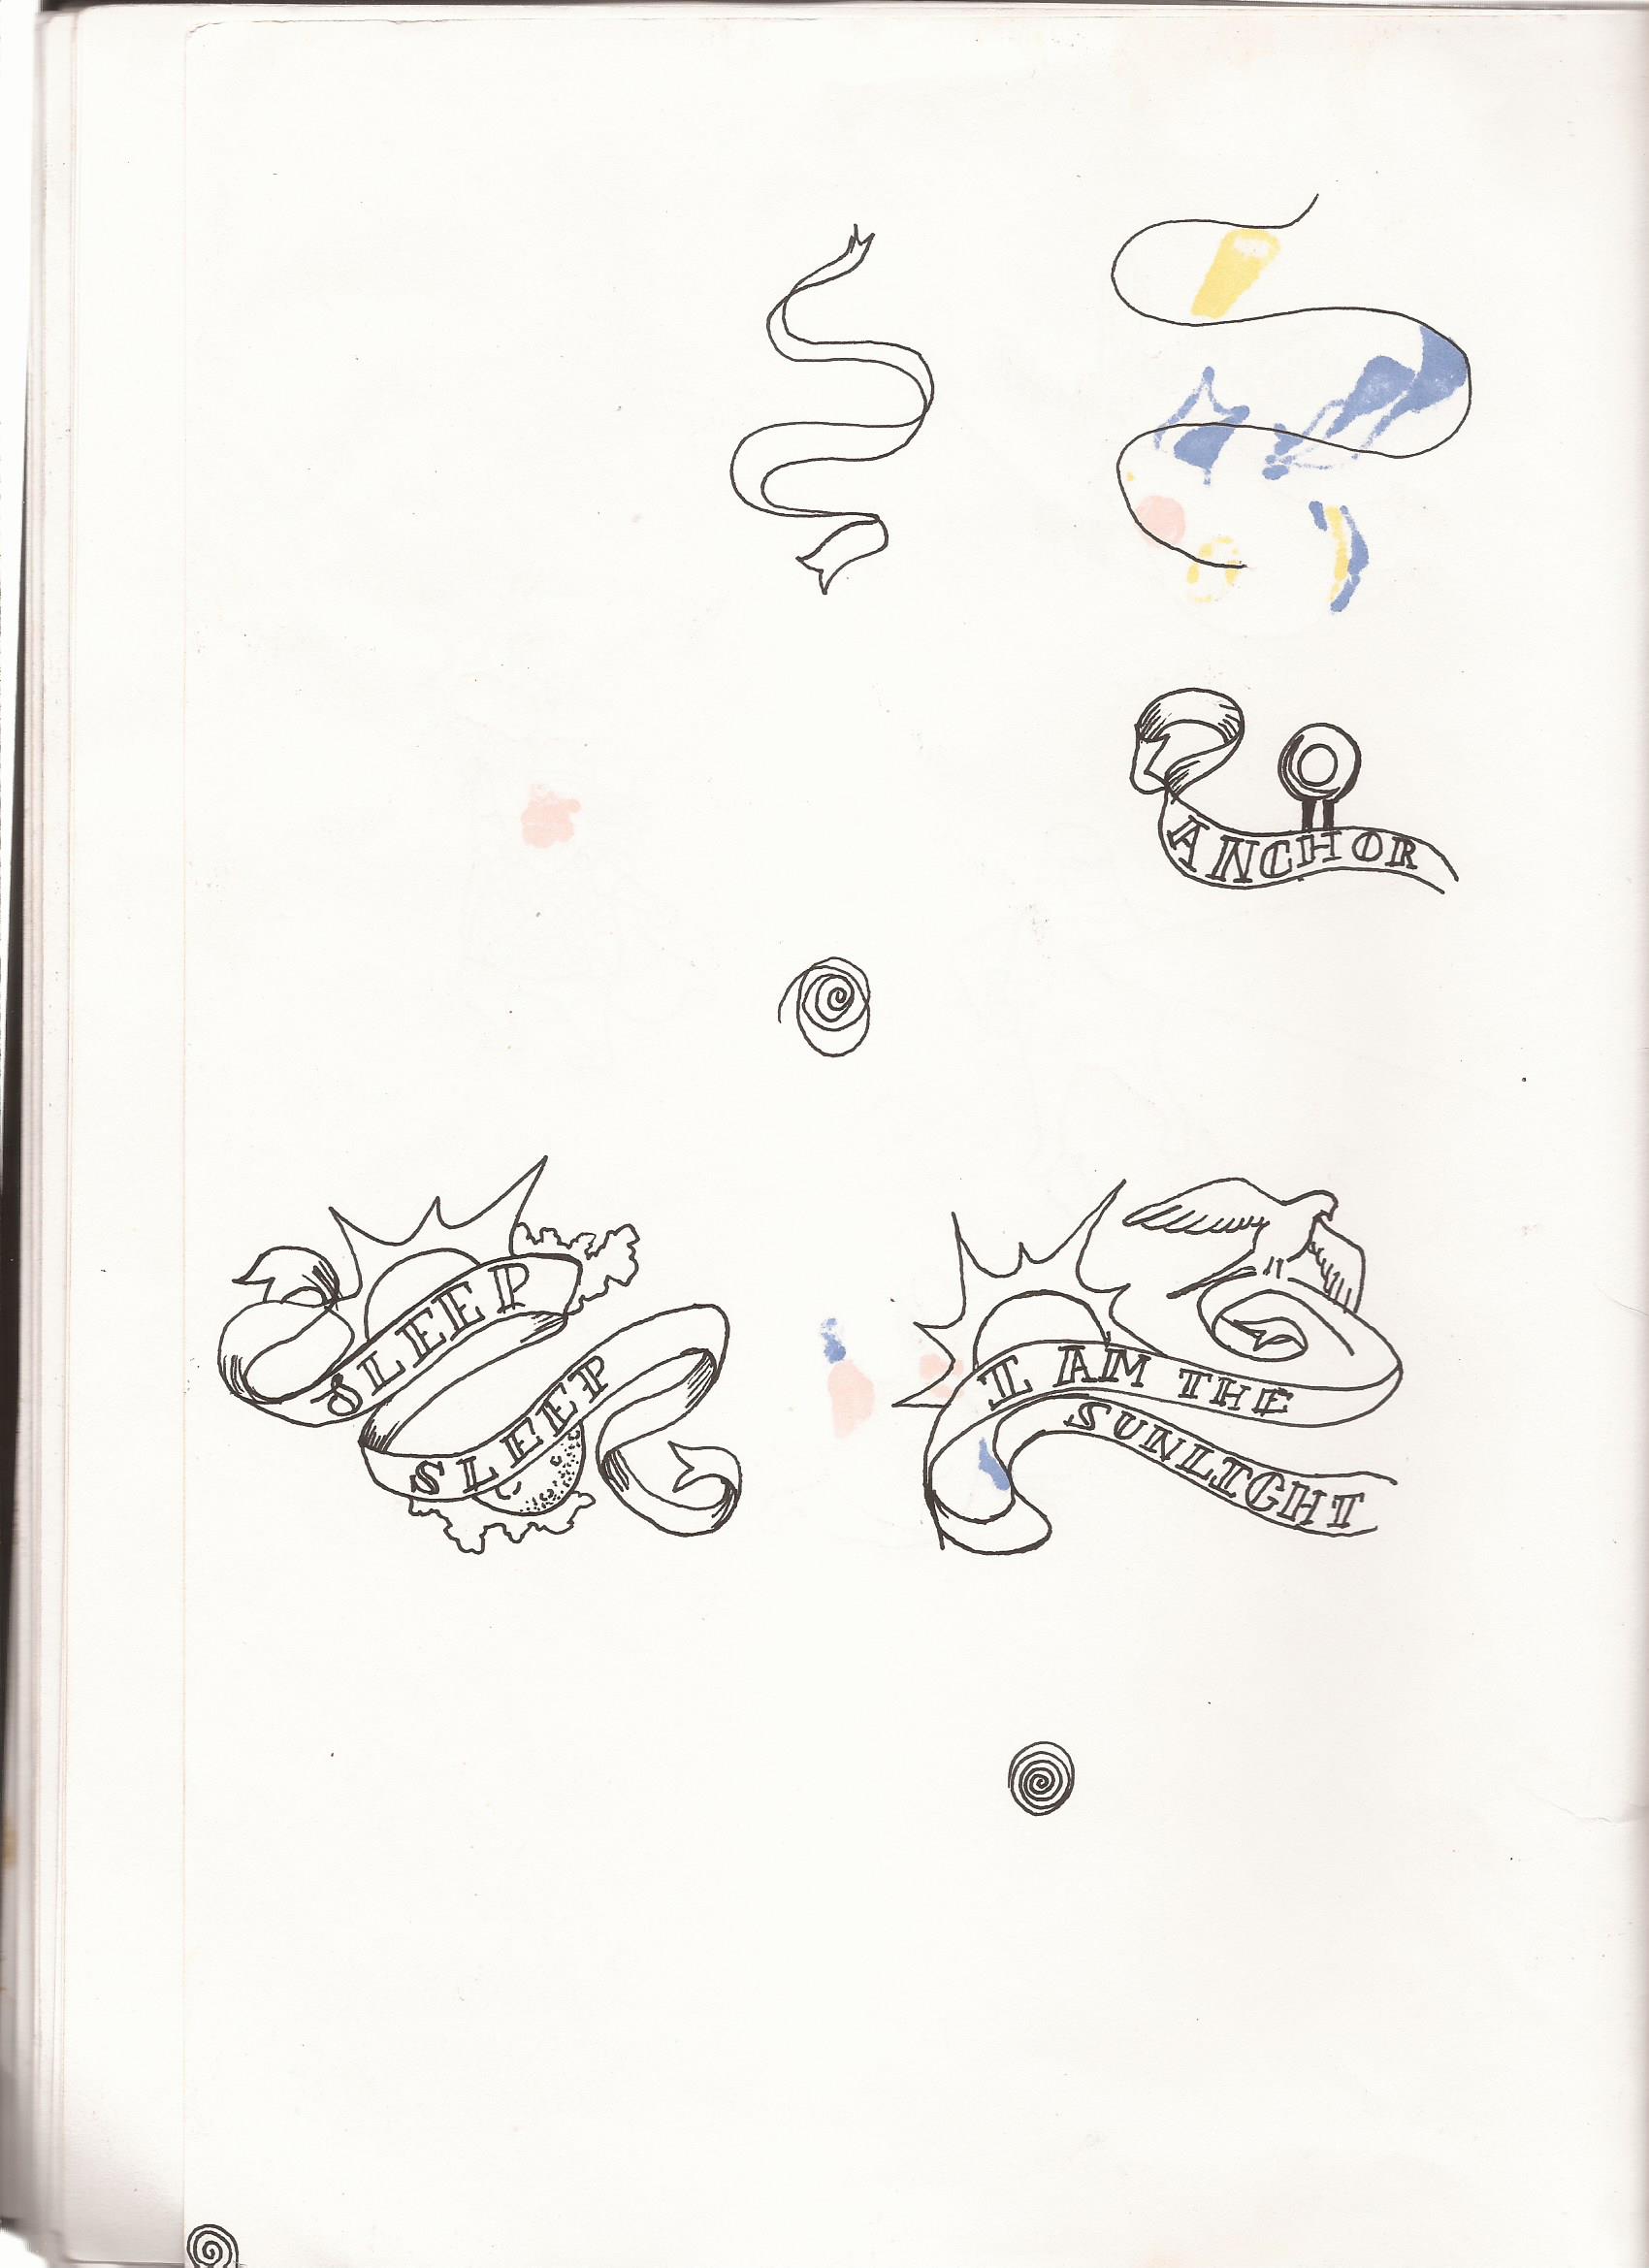 ANCHOR
SLEEP
SLEEP
I AM THE
SUNLIGHT